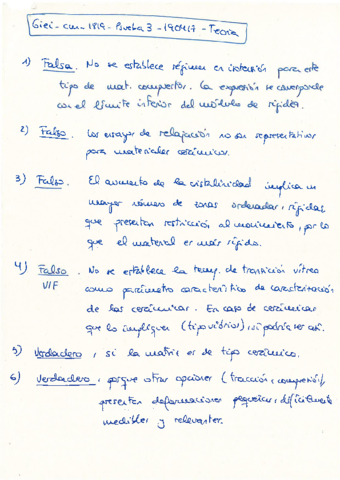 Giei - cm - 1819 - Prueba 3 - 190417 - Teoría
1) Falsa. No se establece régimen en isotensión para este
tipo de mat. compuestos. La expresión se corresponde
con el límite inferior del módulo de rigidez.
2) Falso. Los ensayos de relajación no son representativos
para materiales cerámicos.
3) Falso. El aumento de la cristalinidad implica un
mayor número de zonas ordenadas, rígidas,
que presentan restricción al movimiento, por lo
que el material es más rígido.
4) Falso. No se establece la temp. de transición vítrea
V/F como parámetro característico de caracterización
de las cerámicas. En caso de cerámicas
que lo impliquen (tipo vidrios), sí podría ser así.
5) Verdadero, si la matriz es de tipo cerámico.
6) Verdadero, porque otras opciones (tracción, compresión),
presentan deformaciones pequeñas, difícilmente
medibles y relevantes.